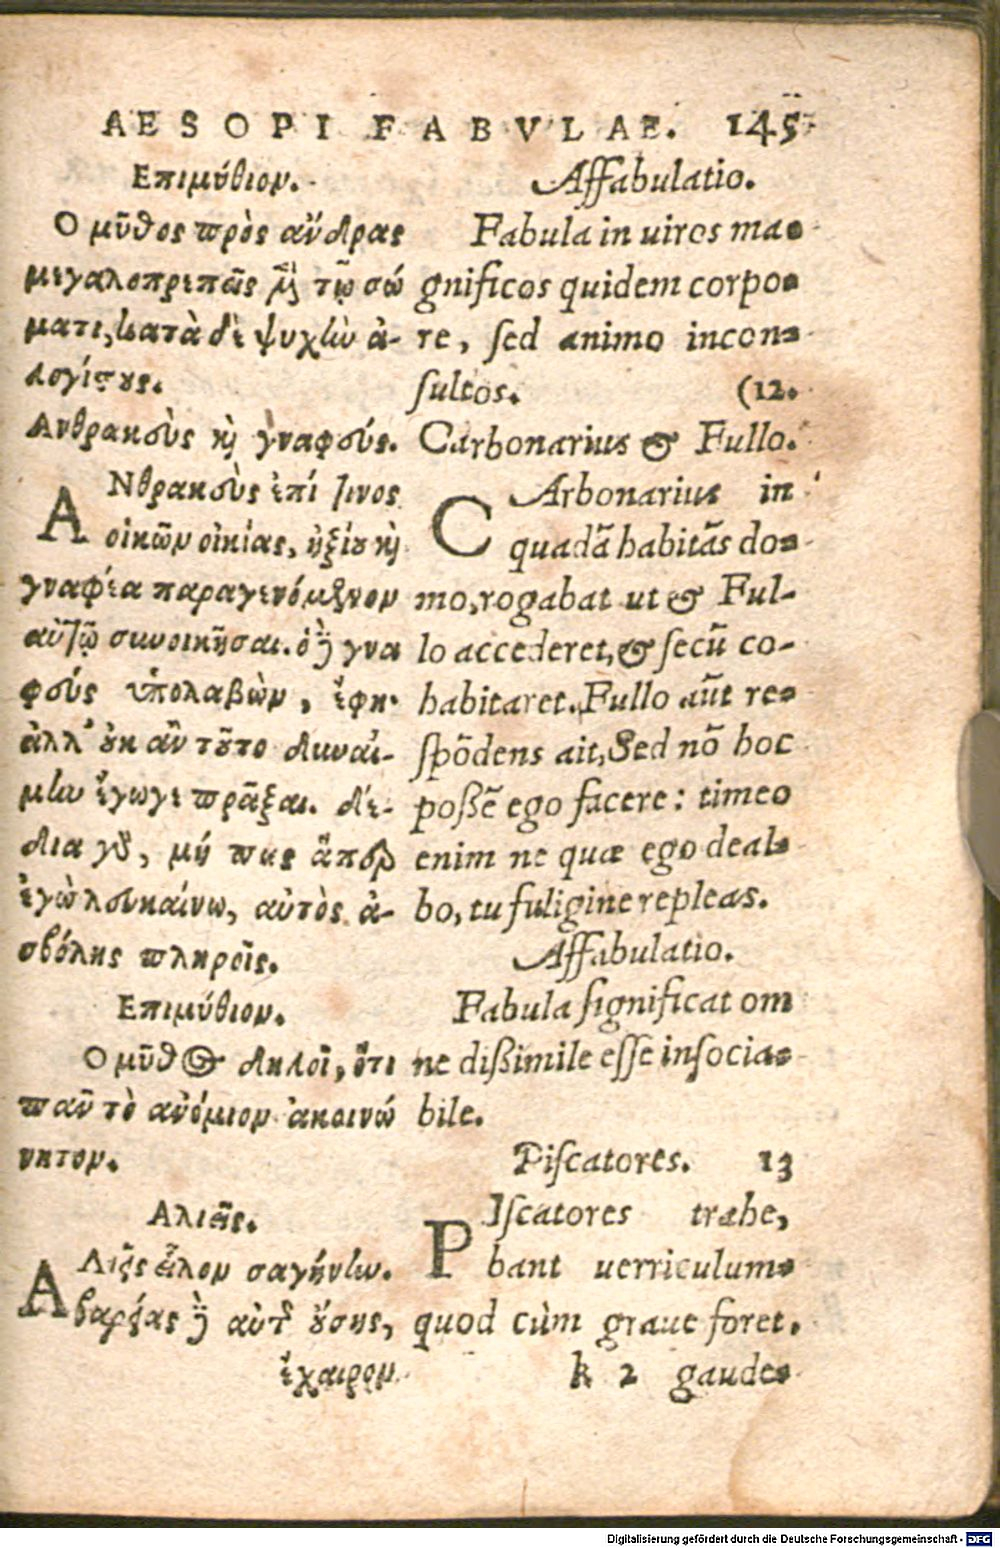 AESOPI FABVLAE. 145
Επιμύθιον.
Ο μῦθος πρὸς ἄνδρας
μεγαλοπρεπεῖς μὲν τῷ σώ
ματι, κατὰ δὲ ψυχὴν ἀ-
λογίστους.
Ανθρακεὺς καὶ γναφεύς.
ΑΝθρακεὺς ἐπί τινος
οἰκῶν οἰκίας, ἠξίου καὶ
γναφέα παραγενόμενον
αὐτῷ συνοικῆσαι. ὁ δὲ γνα
φεύς ὑπολαβὼν, ἔφη·
ἀλλ' οὐκ ἂν τοῦτο δυναί-
μην ἔγωγε πρᾶξαι. δέ-
δια γὰρ, μή πως ἅπερ
ἐγὼ λευκαίνω, αὐτὸς ἀ-
σβόλης πληροῖς.
Επιμύθιον.
Ο μῦθος δηλοῖ, ὅτι
πᾶν τὸ ἀνόμοιον ἀκοινώ
νητον.
Αλιεῖς.
ΑΛιεῖς εἷλκον σαγήνην.
βαρείας δὲ αὐτῆς οὔσης,
ἔχαιρον
Affabulatio.
Fabula in uiros ma-
gnificos quidem corpo-
re, sed animo incon-
sultos. (12.
Carbonarius & Fullo.
CArbonarius in
quadā habitās do-
mo, rogabat ut & Ful-
lo accederet, & secū co-
habitaret. Fullo aūt re-
spōdens ait, Sed nō hoc
possē ego facere: timeo
enim ne quæ ego deal-
bo, tu fuligine repleas.
Affabulatio.
Fabula significat om
ne dissimile esse insocia-
bile.
Piscatores. 13
PIscatores trahe,
bant uerriculum-
quod cùm graue foret.
k 2 gaude-
Digitalisierung gefördert durch die Deutsche Forschungsgemeinschaft - DFG